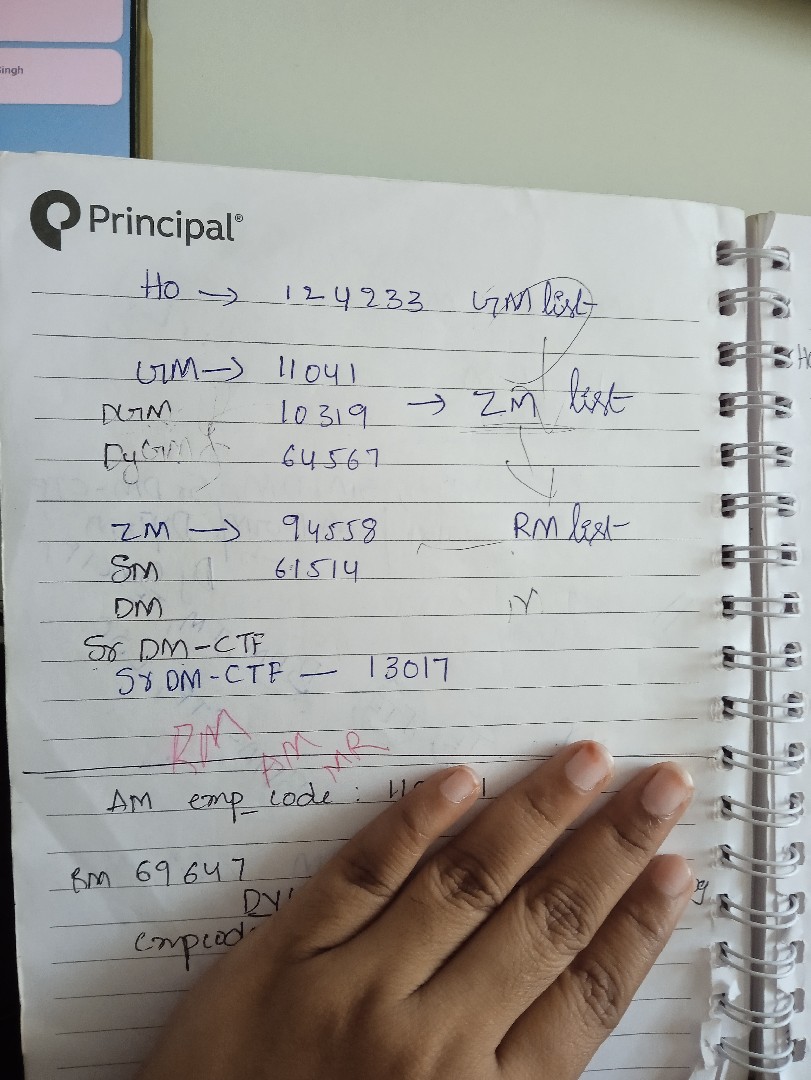 Singh
Principal®
HO → 124233 GM list
GM → 11041
DGM 10319 → ZM list
DyGM 64567
ZM → 94558 RM list
SM 61514
DM
Sr DM-CTF
Sr DM-CTF — 13017
RM AM MR
AM emp_code :
BM 69647
empcod